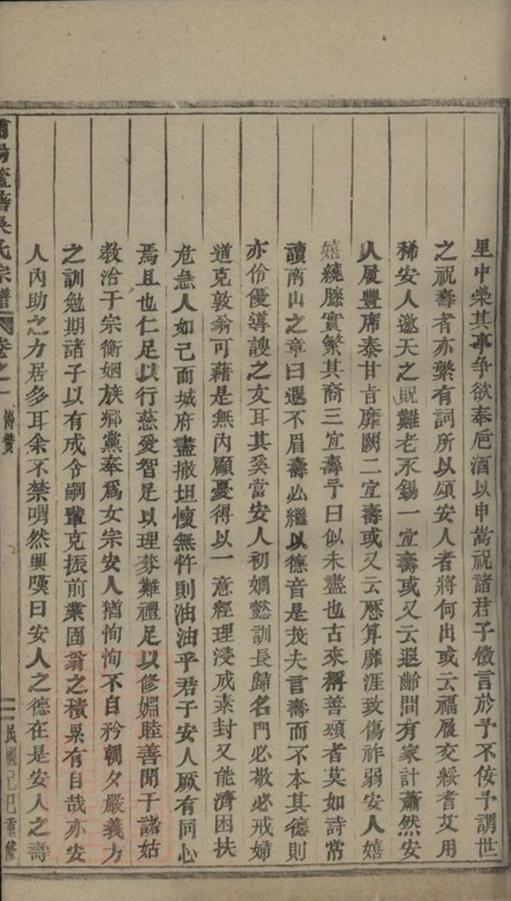 里中樂其事争欲奉卮酒以申嵩祝諸君子徵言於予不佞予謂世
之祝壽者亦樂有詞所以頌安人者將何出或云福履交綏耆艾用
稀安人邀天之貺難老永錫一宜壽或又云遐齡間有家計蕭然安
人履豐席泰甘旨靡闕二宜壽或又云歷算靡涯致傷祚弱安人嬉
嬉繞膝實繁其裔三宜壽予曰似未盡也古來稱善頌者莫如詩常
讀南山之章曰遐不眉壽必繼以德音是茂夫言壽而不本其德則
亦伶優導諛之文耳其奚當安人初嫻懿訓長歸名門必敬必戒婦
道克敦翁可藉是無內顧憂得以一意經理浸成素封又能濟困扶
危急人如己而城府盡撤坦懷無忤則油油乎君子安人厥有同心
焉且也仁足以行慈愛智足以理棼難禮足以修嫻睦善聞于諸姑
教洽于宗衡姻族鄉黨奉爲女宗安人猶恂恂不自矜朝夕嚴義方
之訓勉期諸子以有成令嗣輩克振前業固翁之積累有自哉亦安
人內助之力居多耳余不禁喟然興嘆曰安人之德在是安人之壽
吳氏宗譜 卷之一 傳贊 二 民國己巳重修